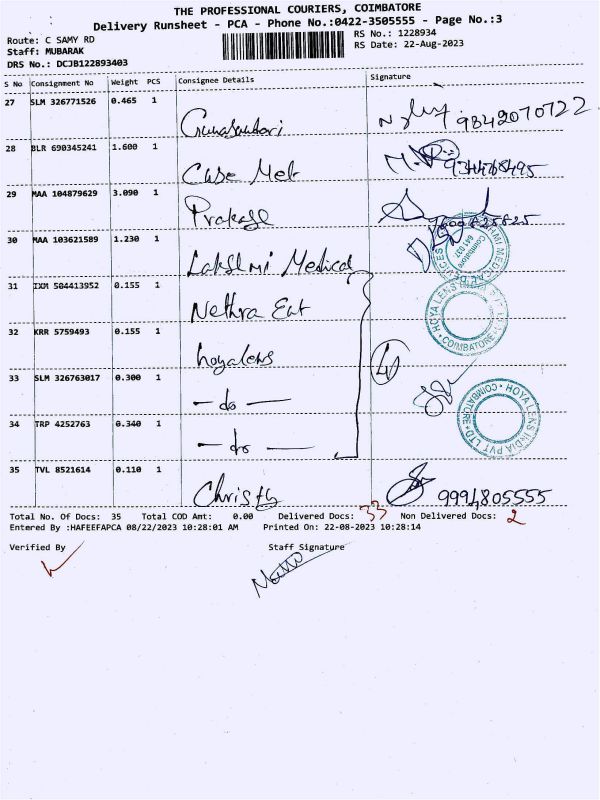 THE PROFESSIONAL COURIERS, COIMBATORE
Delivery Runsheet - PCA - Phone No.:0422-3505555 - Page No.:3
Route: C SAMY RD
RS No.: 1228934
Staff: MUBARAK
RS Date: 22-Aug-2023
DRS No.: DCJB122893403
S No Consignment No Weight PCS Consignee Details Signature
27 SLM 326771526 0.465 1 Gunasundari 9842070722
28 BLR 690345241 1.600 1 Case Meb
29 MAA 104879629 3.090 1 Prakash
30 MAA 103621589 1.230 1 Lakshmi Medical
31 IXM 504413952 0.155 1 Nethra Ent
32 KRR 5759493 0.155 1 hoyalens
33 SLM 326763017 0.300 1 - do -
34 TRP 4252763 0.340 1 - do -
35 TVL 8521614 0.110 1 Christy 9994805555
COIMBATORE
HOYA LENS INDIA PVT LTD * COIMBATORE *
Total No. Of Docs: 35 Total COD Amt: 0.00 Delivered Docs: 33 Non Delivered Docs: 2
Entered By :HAFEEFAPCA 08/22/2023 10:28:01 AM Printed On: 22-08-2023 10:28:14
Verified By Staff Signature